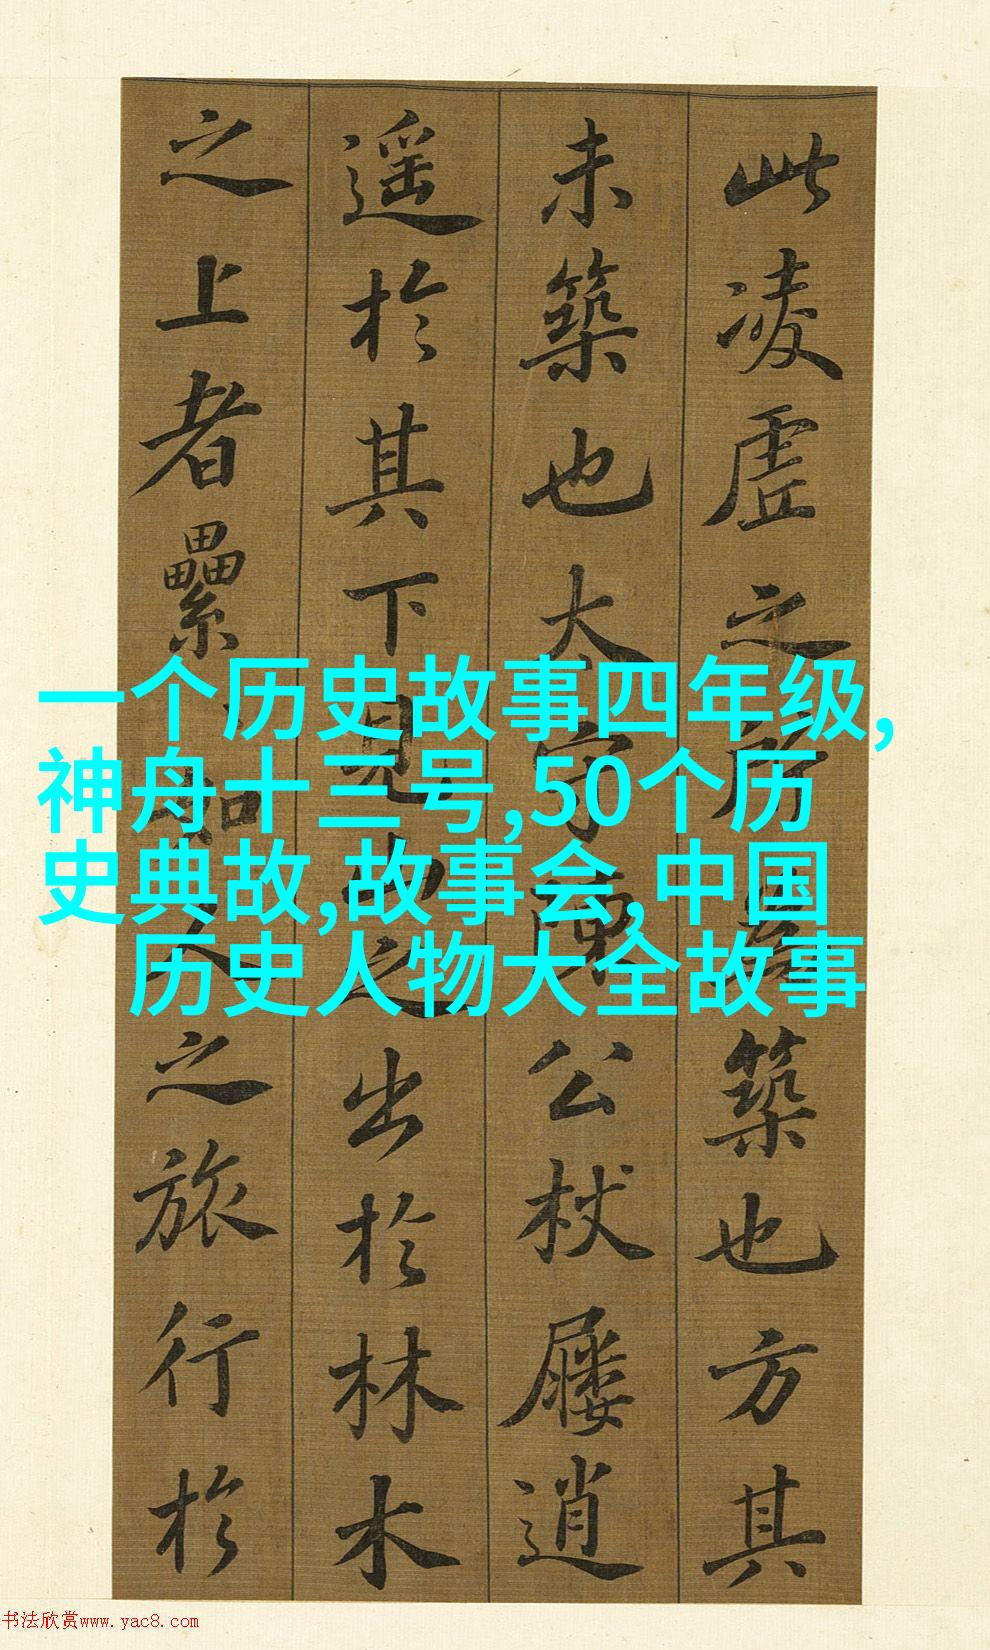 此凌虛之所為築也方其
未築也太守陳公杖屨逍
遥於其下見山之出於林木
之上者纍々如人之旅行於
一个历史故事四年级,
神舟十三号,50个历
史典故,故事会,中国
历史人物大全故事
书法欣赏www.yac8.com